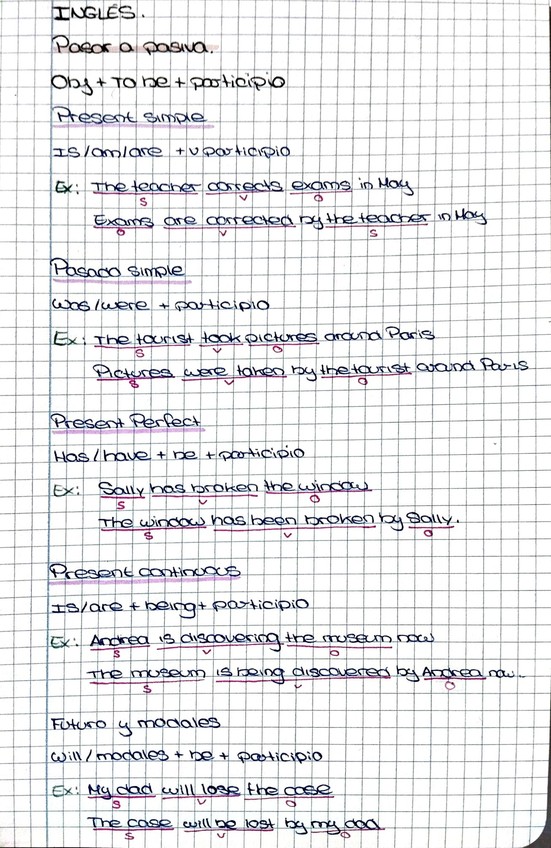 INGLES.
Pasar a pasiva.
Obj + To be + participio
Present simple
Is/am/are + v participio
Ex: The teacher corrects exams in May
S V O
Exams are corrected by the teacher in May
O V S
Pasado simple
Was/were + participio
Ex: The tourist took pictures around Paris
S V O
Pictures were taken by the tourist around Paris
S V O
Present Perfect
Has/have + be + participio
Ex: Sally has broken the window
S V O
The window has been broken by Sally.
S V O
Present continuous
Is/are + being + participio
Ex: Andrea is discovering the museum now
S V O
The museum is being discovered by Andrea now.
S V O
Futuro y modales
Will/modales + be + participio
Ex: My dad will lose the case
S V O
The case will be lost by my dad
S V O